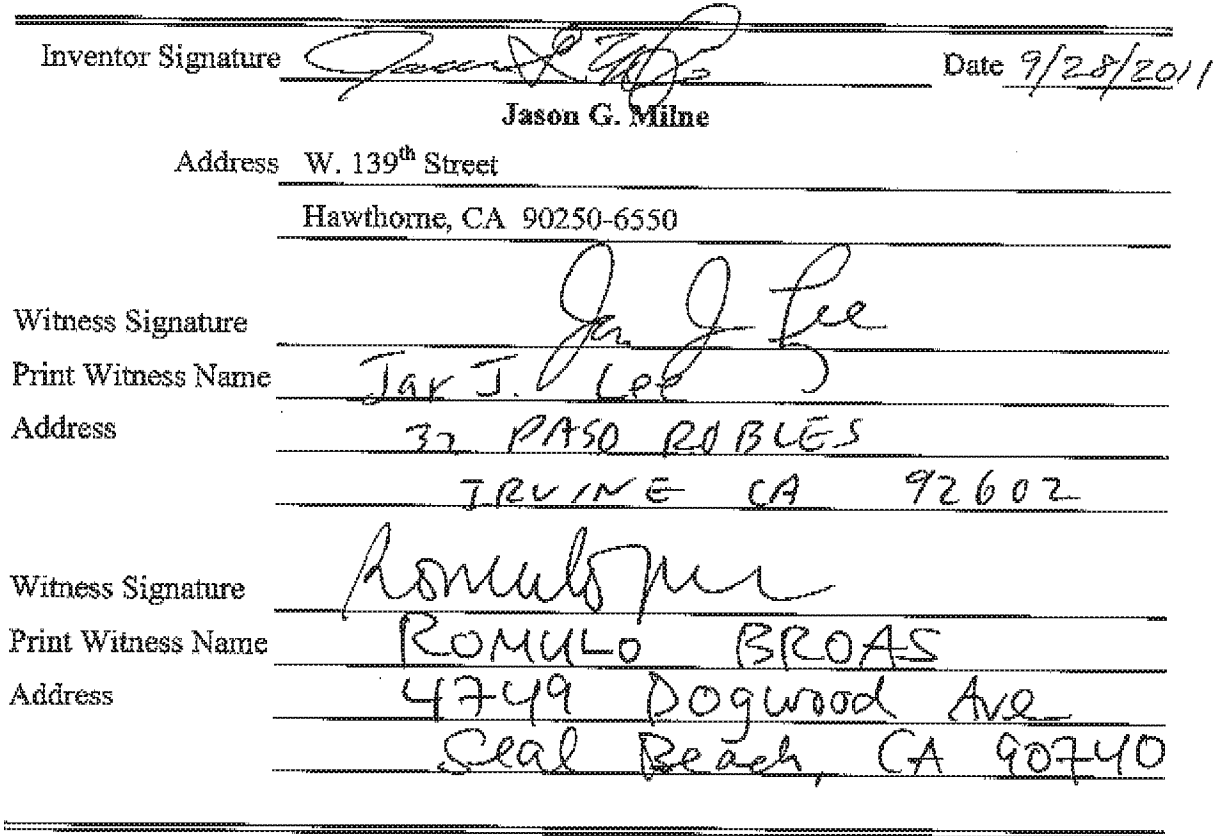 Inventor Signature Date 9/28/2011
Jason G. Milne
Address W. 139th Street
Hawthorne, CA 90250-6550
Witness Signature Jar J Lee
Print Witness Name Jar J. Lee
Address 32 PASO ROBLES
IRVINE CA 92602
Witness Signature
Print Witness Name ROMULO BROAS
Address 4749 Dogwood Ave
Seal Beach, CA 90740